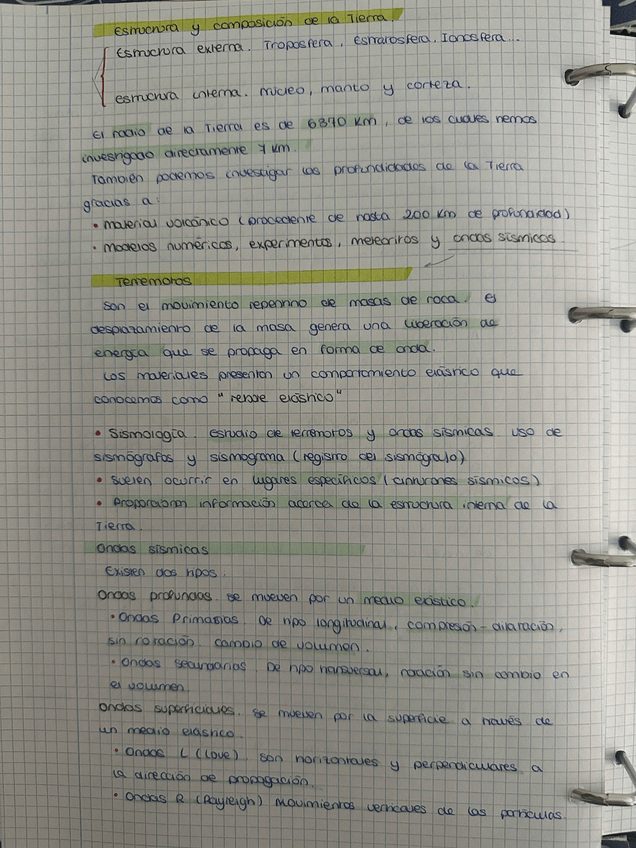 Estructura y composición de la Tierra.
Estructura externa. Troposfera, Estratosfera, Ionosfera...
estructura interna. núcleo, manto y corteza.
El radio de la Tierra es de 6370 km, de los cuales hemos
investigado directamente 7 km.
También podemos investigar las profundidades de la Tierra
gracias a:
• material volcánico (procedente de hasta 200 km de profundidad)
• modelos numéricos, experimentos, meteoritos y ondas sísmicas.
Terremotos
Son el movimiento repentino de masas de roca. el
desplazamiento de la masa genera una liberación de
energía que se propaga en forma de onda.
Los materiales presentan un comportamiento elástico que
conocemos como "rebote elástico"
• Sismología. estudio de terremotos y ondas sísmicas uso de
sismógrafos y sismograma (registro del sismógrafo)
• suelen ocurrir en lugares específicos (cinturones sísmicos)
• Proporcionan información acerca de la estructura interna de la
Tierra.
Ondas sísmicas
Existen dos tipos.
Ondas profundas. se mueven por un medio elástico.
• Ondas Primarias. De tipo longitudinal, compresión-dilatación,
sin rotación. cambio de volumen.
• Ondas secundarias. De tipo transversal, rotación sin cambio en
el volumen.
Ondas superficiales. se mueven por la superficie a través de
un medio elástico.
• Ondas L (Love). son horizontales y perpendiculares a
la dirección de propagación.
• Ondas R (Rayleigh) movimientos verticales de las partículas.